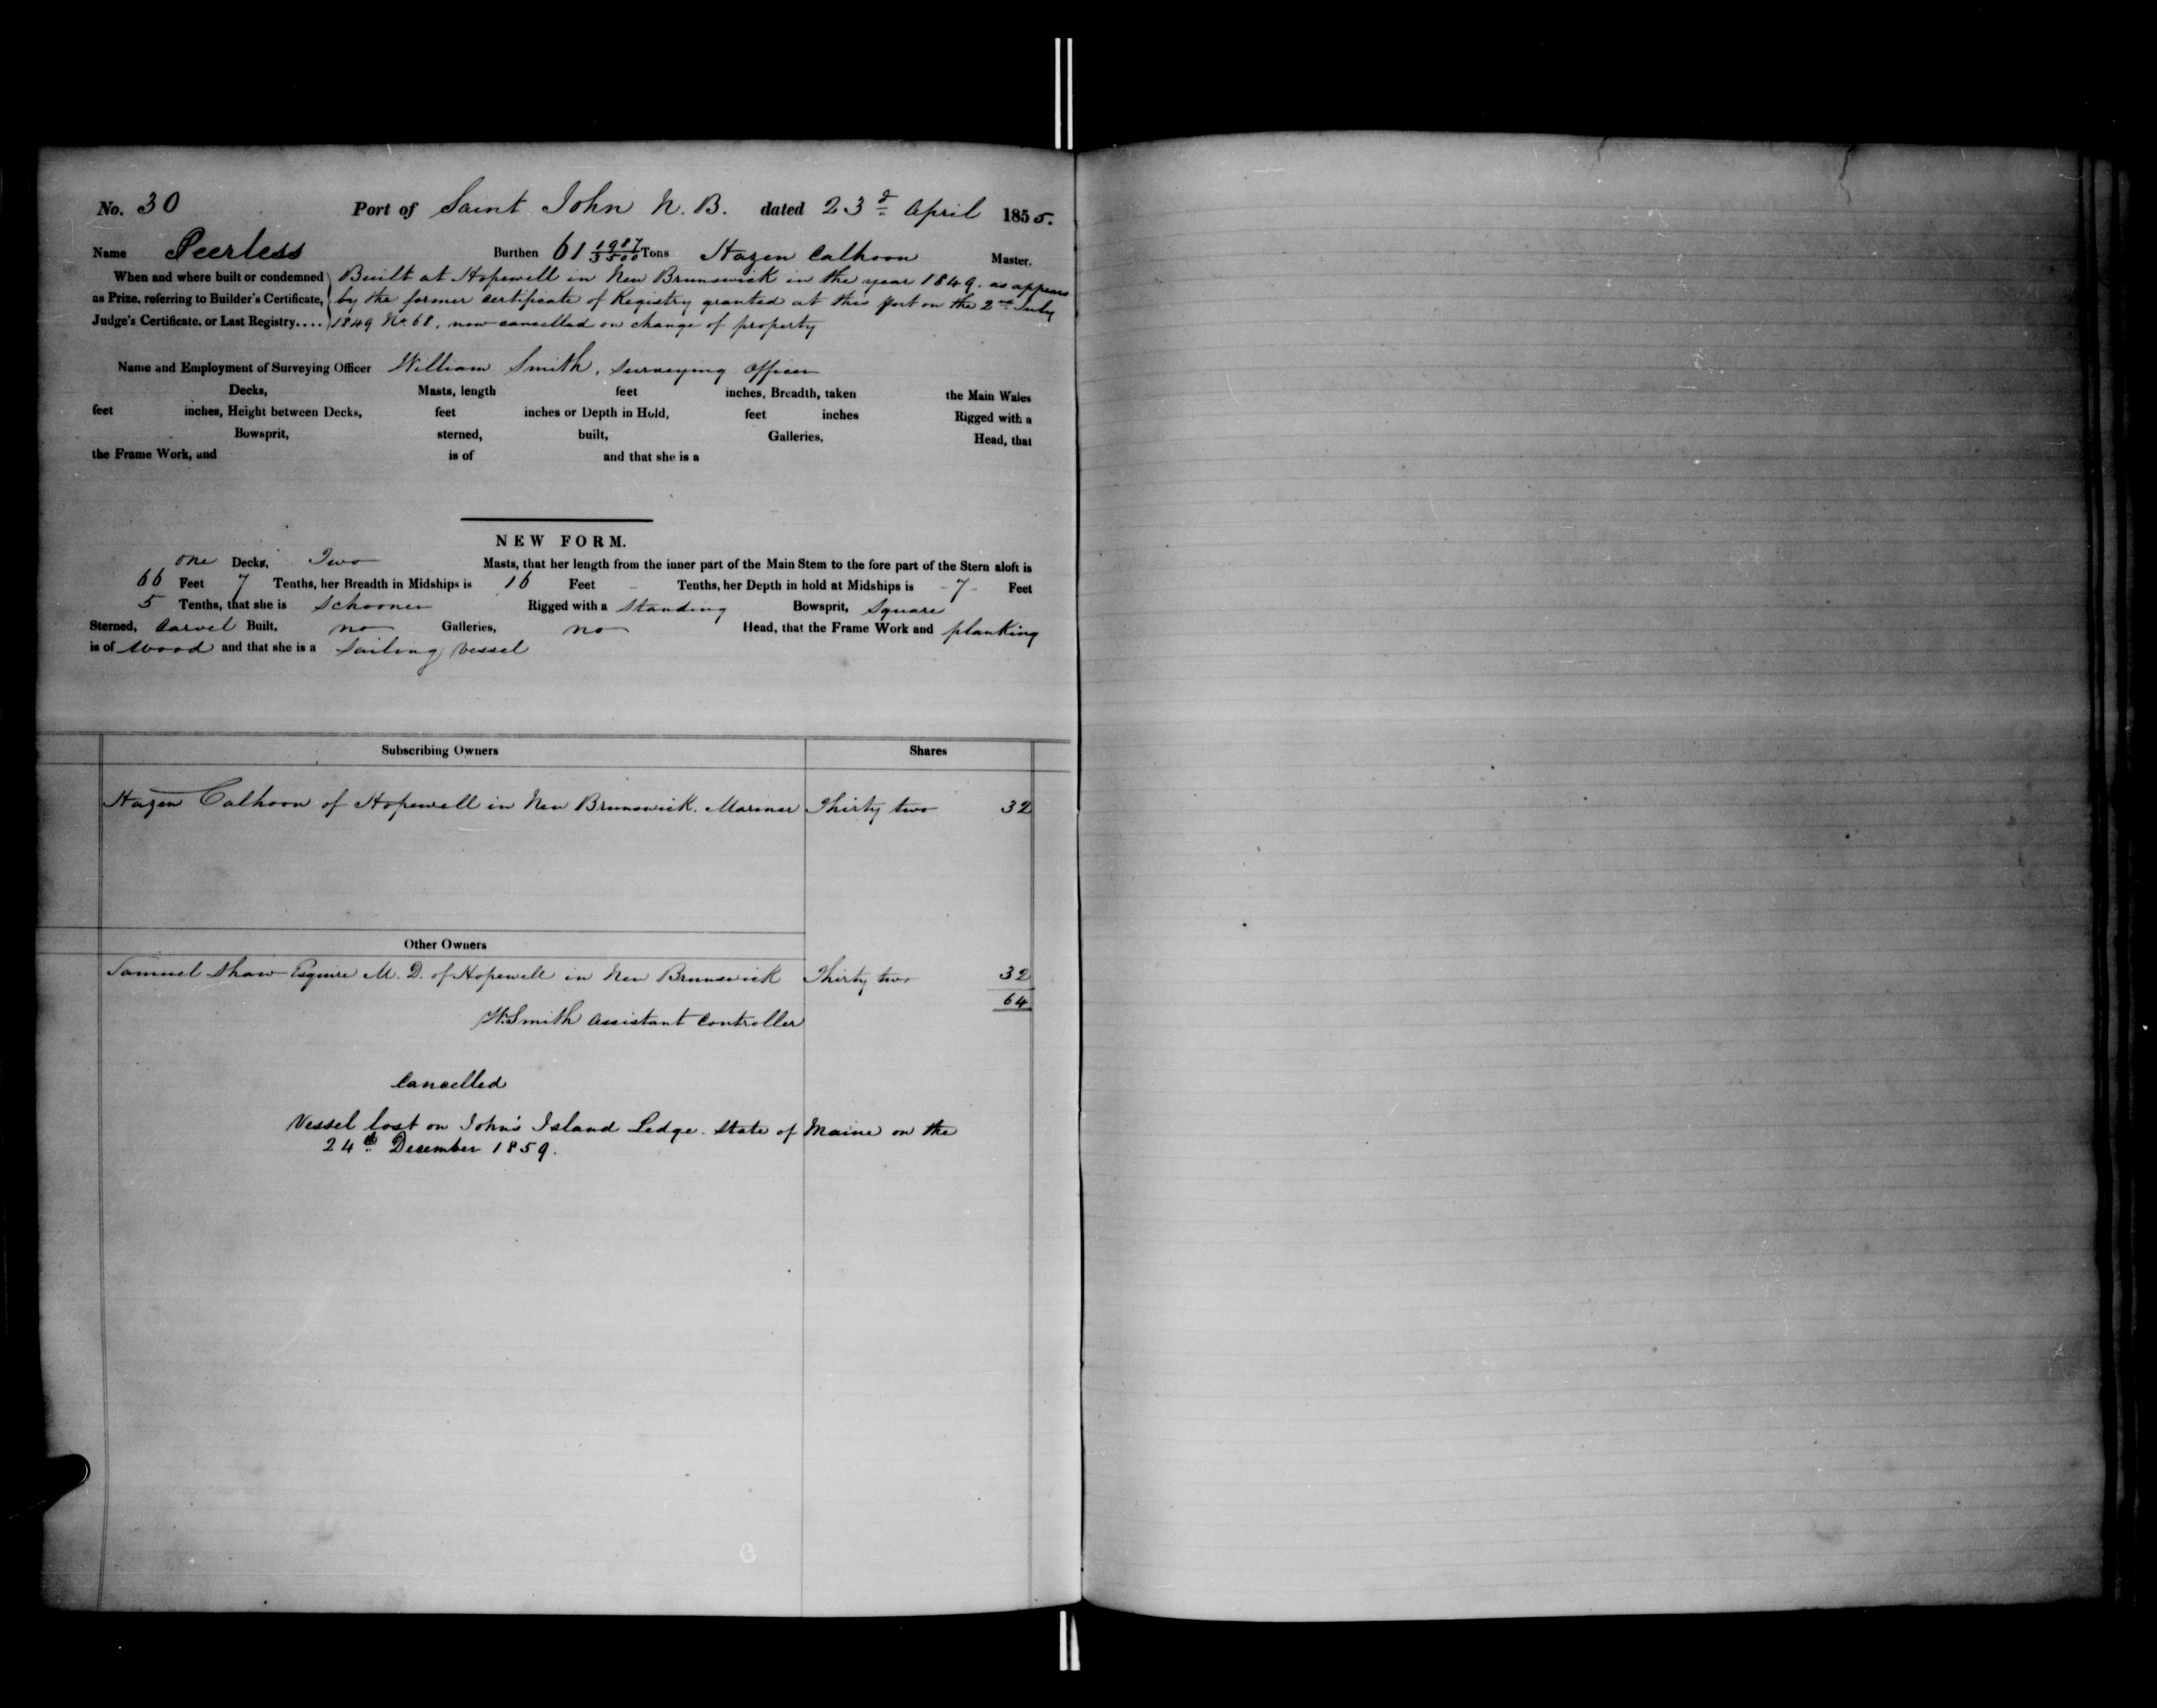 No. 30 Port of Saint John N. B. dated 23d April 1855.
Name Peerless Burthen 61 1987/3500 Tons Hazen Calhoon Master.
When and where built or condemned Built at Hopewell in New Brunswick in the year 1849. as appears
as Prize, referring to Builder's Certificate, by the former Certificate of Registry granted at this port on the 2nd July
Judge's Certificate, or Last Registry.... 1849 No. 68, now cancelled on change of property
Name and Employment of Surveying Officer William Smith, Surveying Officer
Decks, Masts, length feet inches, Breadth, taken the Main Wales
feet inches, Height between Decks, feet inches or Depth in Hold, feet inches Rigged with a
Bowsprit, sterned, built, Galleries, Head, that
the Frame Work, and is of and that she is a
NEW FORM.
one Decks, Two Masts, that her length from the inner part of the Main Stem to the fore part of the Stern aloft is
66 Feet 7 Tenths, her Breadth in Midships is 16 Feet - Tenths, her Depth in hold at Midships is - 7 - Feet
5 Tenths, that she is Schooner Rigged with a Standing Bowsprit, Square
Sterned, Carvel Built, no Galleries, no Head, that the Frame Work and planking
is of Wood and that she is a Sailing Vessel
Subscribing Owners Shares
Hazen Calhoon of Hopewell in New Brunswick. Mariner Thirty two 32
Other Owners
Samuel Shaw Esquire M. D. of Hopewell in New Brunswick Thirty two 32
64
W. Smith Assistant Controller
Cancelled
Vessel lost on John's Island Ledge. State of Maine on the
24th December 1859.